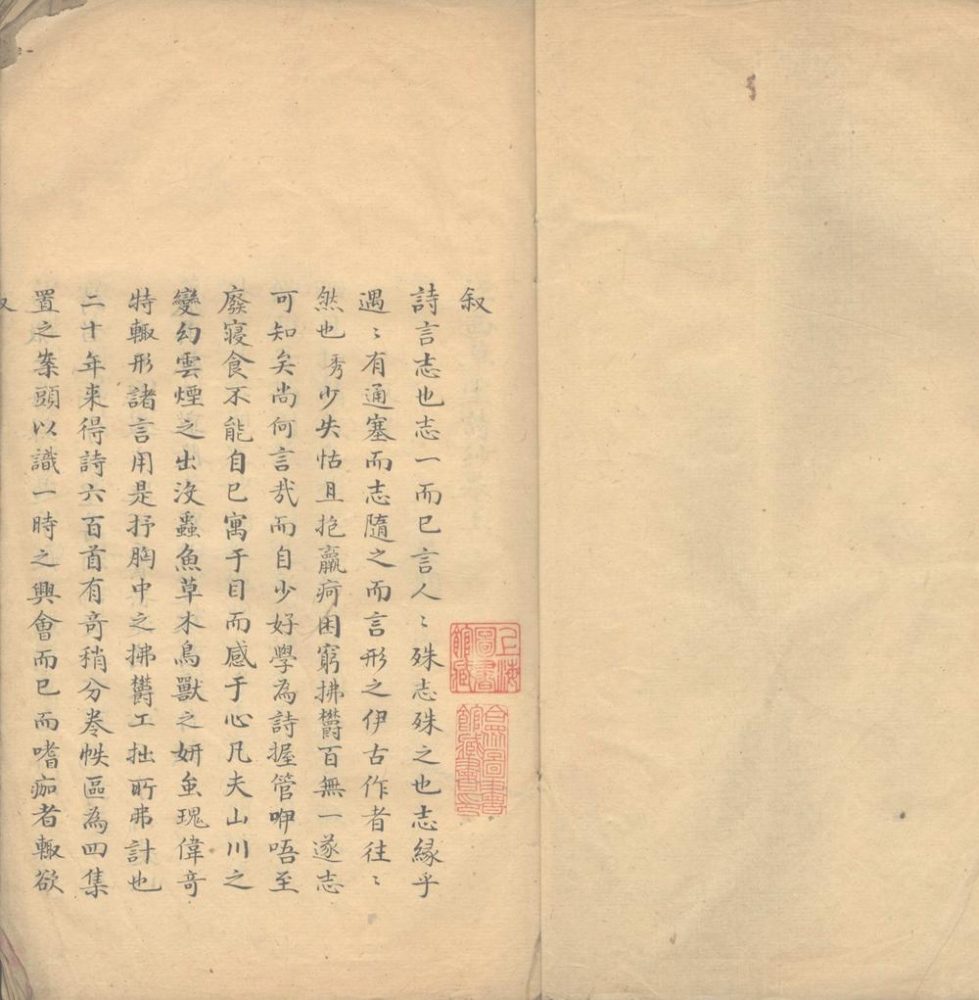 叙
詩言志也志一而已言人〻殊志殊之也志緣乎
遇〻有通塞而志隨之而言形之伊古作者往〻
然也秀少失怙且抱羸疴困窮拂鬱百無一遂志
可知矣尚何言哉而自少好學為詩握管咿唔至
廢寢食不能自已寓于目而感于心凡夫山川之
變幻雲煙之出沒蟲魚草木鳥獸之妍䖝瑰偉奇
特輙形諸言用是抒胸中之拂鬱工拙所弗計也
二十年来得詩六百首有奇稍分卷帙區為四集
置之案頭以識一時之興會而已而嗜痂者輙欲
上海圖書館藏
合眾圖書館藏書印